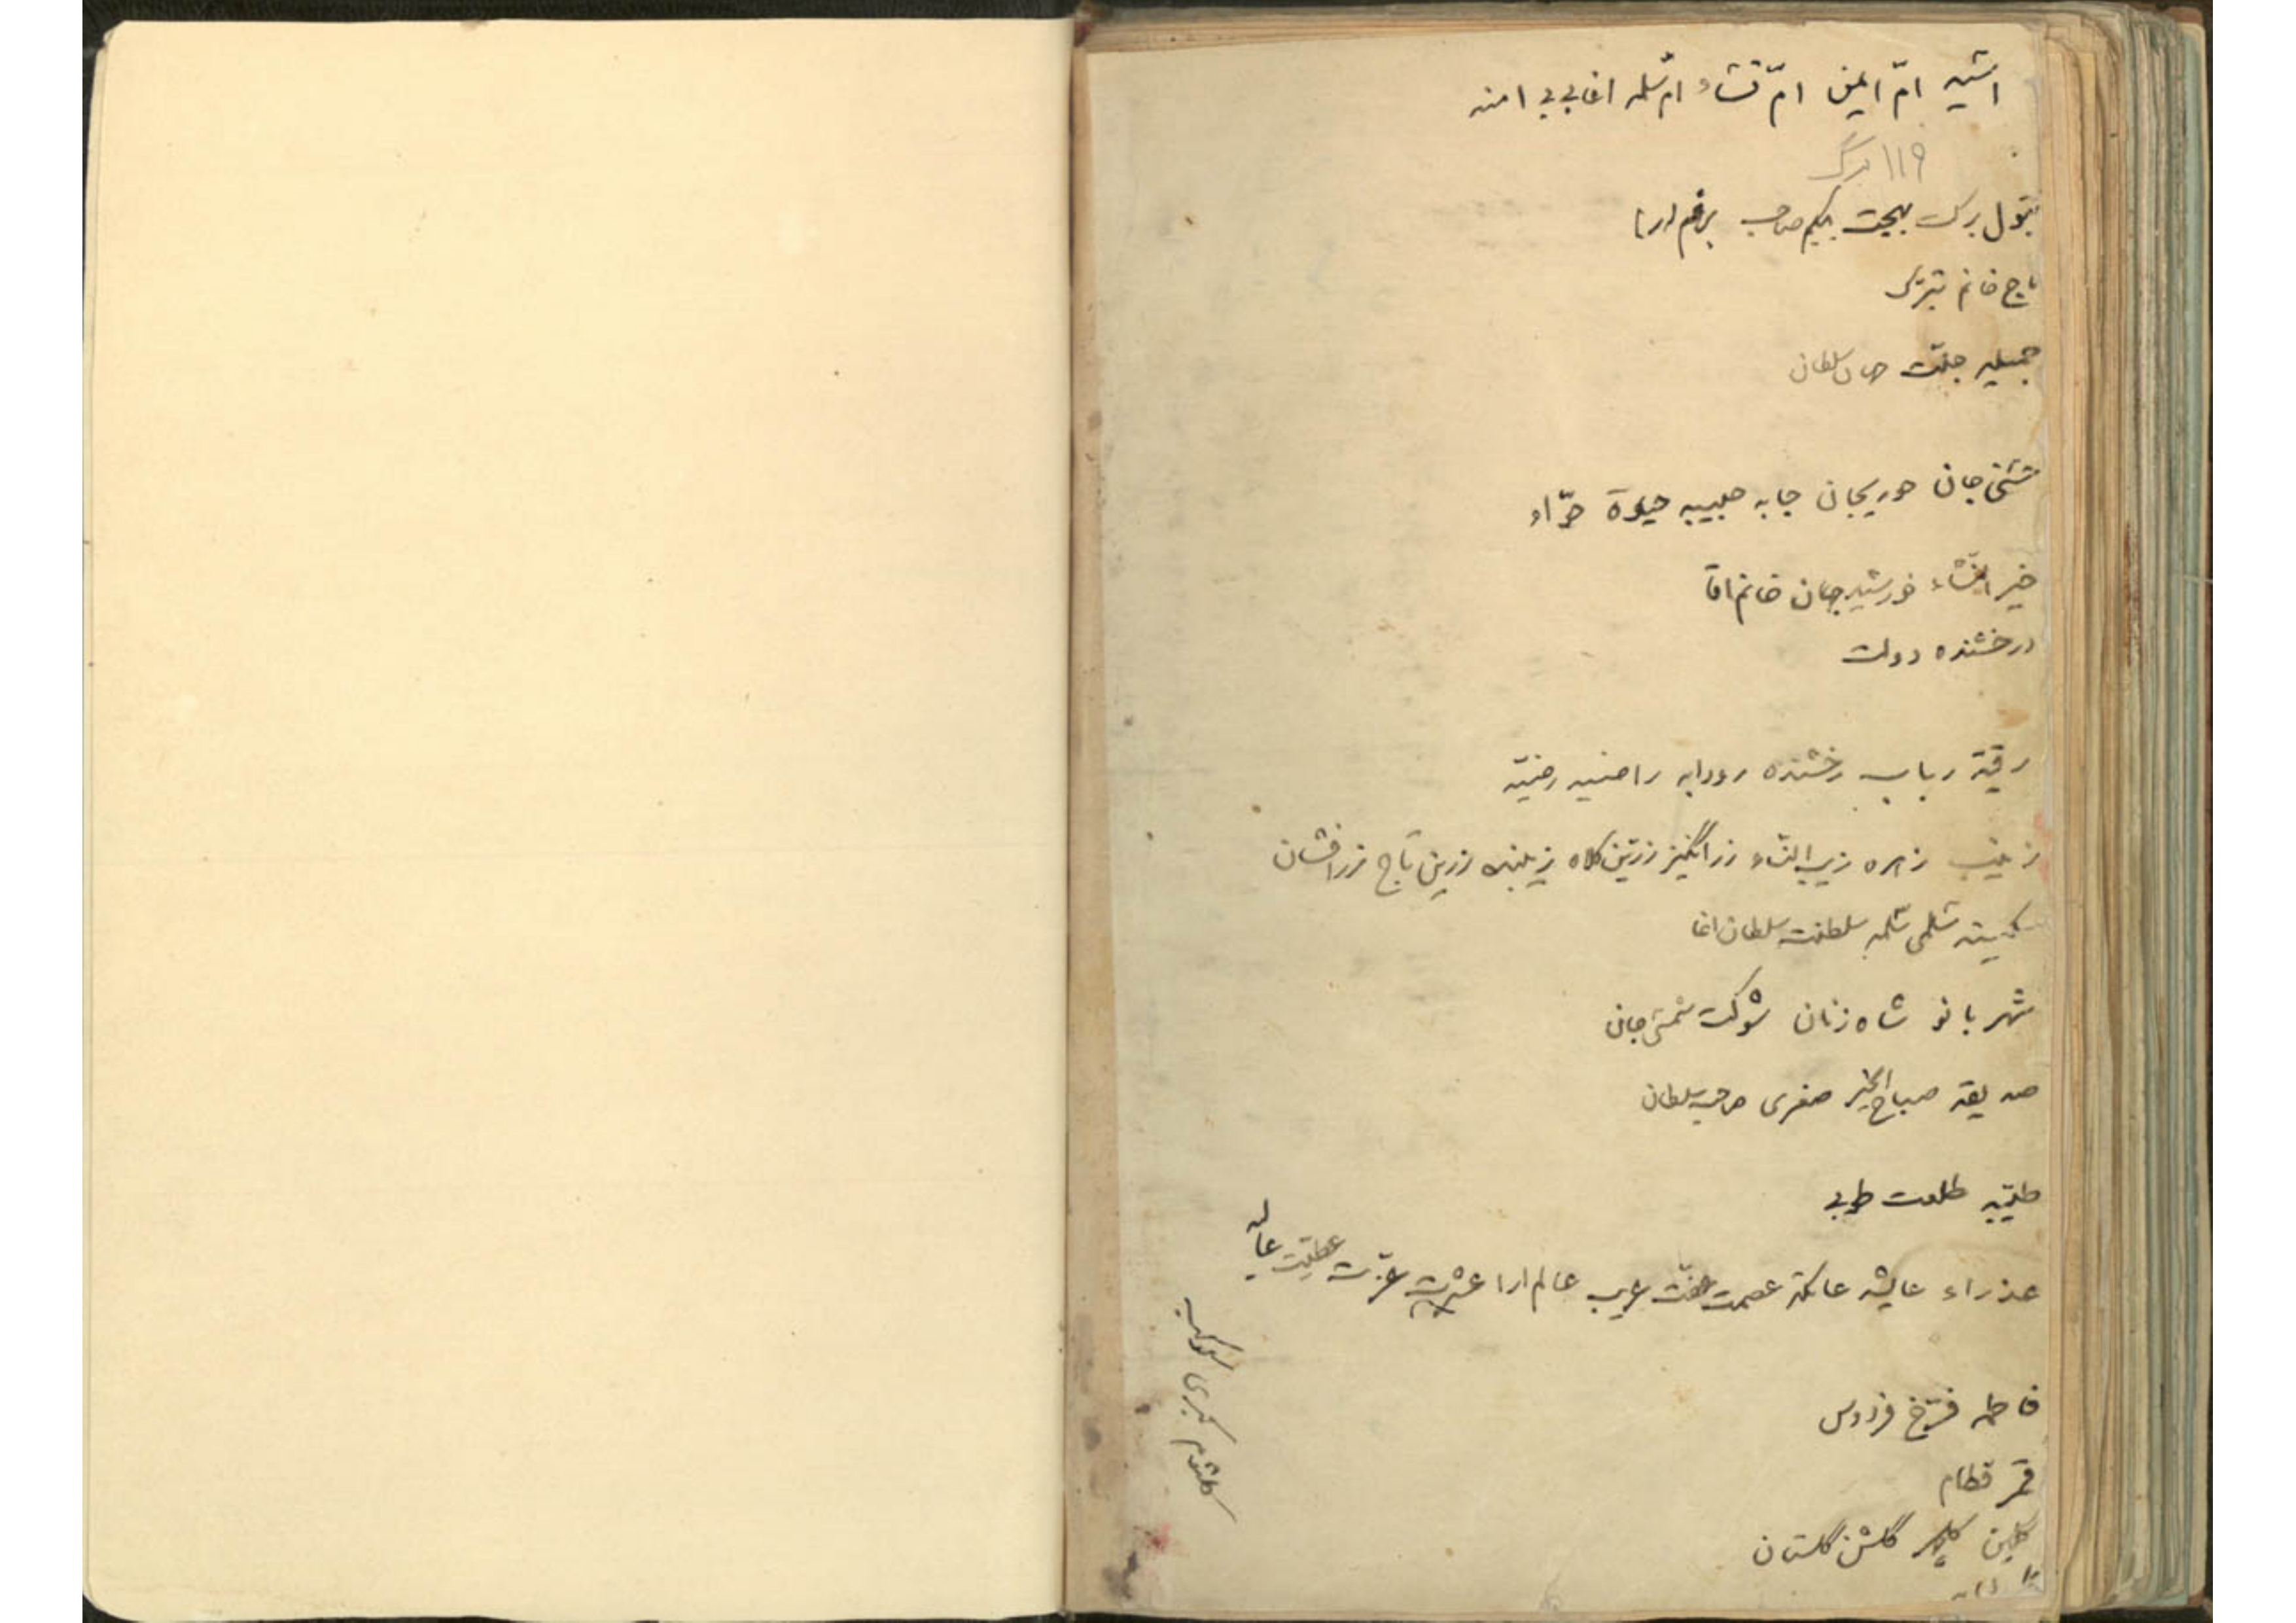 اسیه امّ ایمن امّ نساء امّ سلمه اغابی بی امنه
۱۱۹ برگ
بتول برکت بهجت بیکم صاحب بزم ارا
تاج خانم تبریک
جمیله جنّت جهان سلطان
حسنی جان حوریجان حبابه حبیبه حیوة حوّاء
خیر النّساء خورشید جهان خانم اقا
درخشنده دولت
رقیّه رباب رخشنده رودابه راضیه رضیّه
زینب زهره زیب النساء زرانگیز زرّین کلاه زبیده زرین تاج زرافشان
سکینه سلمی سلمه سلطنت سلطان اغا
شهر بانو شاه زنان شوکت شمسی جان
صدیقه صباح الخیر صغری صاحب سلطان
طیّبه طلعت طوبی
عذراء عایشه عاتکه عصمت عفّت عالم ارا عشرت عزّت عطیّت عالیه
فاطمه فرّخ فردوس
قمر قطام
گلین گلشن گلستان
کلثوم کبری